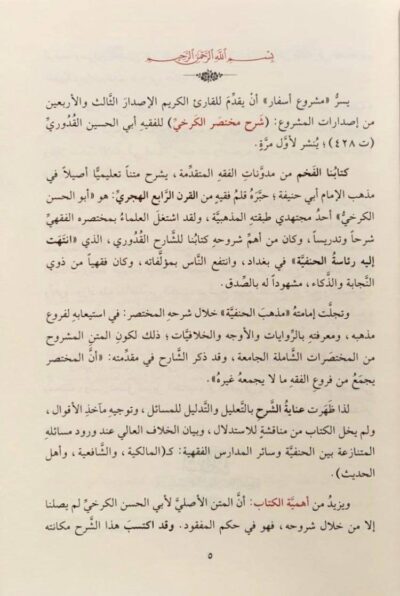 بِسْمِ اللَّهِ الرَّحْمَنِ الرَّحِيمِ
يسرُّ «مشروع أسفار» أنْ يقدِّمَ للقارئ الكريم الإصدارَ الثَّالث والأربعين
من إصدارات المشروع: (شَرح مختصَر الكرخيِّ) للفقيهِ أبي الحسين القُدُوريِّ
(ت ٤٢٨)؛ يُنشر لأوَّل مرَّةٍ.
كتابُنا الفَخم من مدوَّناتِ الفقهِ المتقدِّمة، يشرح متناً تعليميًّا أصيلاً في
مذهب الإمام أبي حنيفة؛ حبَّرَهُ قلمُ فقيهٍ من القرن الرَّابع الهجريِّ: هو «أبو الحسن
الكرخيُّ» أحدُ مجتهدي طبقتهِ المذهبيَّة، ولقد اشتغلَ العلماءُ بمختصره الفقهيِّ
شرحاً وتدريساً، وكان من أهمِّ شروحهِ كتابُنا للشَّارح القُدُوري، الذي «انتَهَت
إليه رئاسةُ الحنفيَّة» في بغداد، وانتفع النَّاس بمؤلَّفاته، وكان فقهياً من ذوي
النَّجابة والذَّكاء، مشهوداً له بالصِّدق.
وتجلَّت إمامتهُ «مذهبَ الحنفيَّة» خلال شرحهِ المختصر: في استيعابهِ لفروع
مذهبه، ومعرفتهِ بالرِّوايات والأوجه والخلافيَّات؛ ذلك لكونِ المتنِ المشروح
من المختصَرات الشَّاملة الجامعة، وقد ذكر الشَّارح في مقدَّمته: «أنَّ المختصر
يجمَعُ من فروعِ الفقهِ ما لا يجمعهُ غيرهُ».
لذا ظَهَرت عنايةُ الشَّرح بالتَّعليل والتَّدليل للمسائل، وتوجيهِ مآخِذِ الأقوال،
ولم يخل الكتاب من مناقشةٍ للاستدلال، وبيان الخلاف العالي عند ورود مسائلهِ
المتنازعة بين الحنفيَّة وسائر المدارس الفقهية: كـ(المالكية، والشَّافعية، وأهل
الحديث).
ويزيدُ من أهميَّة الكتاب: أنَّ المتن الأصليَّ لأبي الحسن الكرخيِّ لم يصلنا
إلا من خلال شروحه، فهو في حكم المفقود. وقد اكتسبَ هذا الشَّرح مكانته
٥